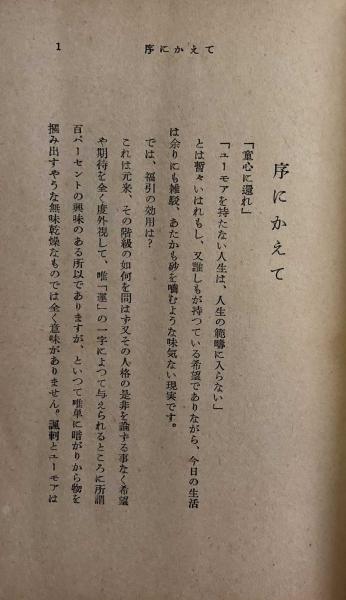 序にかえて
1
序にかえて
「童心に還れ」
「ユーモアを持たない人生は、人生の範疇に入らない」
とは暫々いはれもし、又誰しもが持つている希望でありながら、今日の生活
は余りにも雑駁、あたかも砂を嚙むような味気ない現実です。
では、福引の効用は？
これは元来、その階級の如何を問はず又その人格の是非を論ずる事なく希望
や期待を全く度外視して、唯「運」の一字によつて与えられるところに所謂
百パーセントの興味のある所以でありますが、といつて唯単に暗がりから物を
摑み出すやうな無味乾燥なものでは全く意味がありません。諷刺とユーモアは